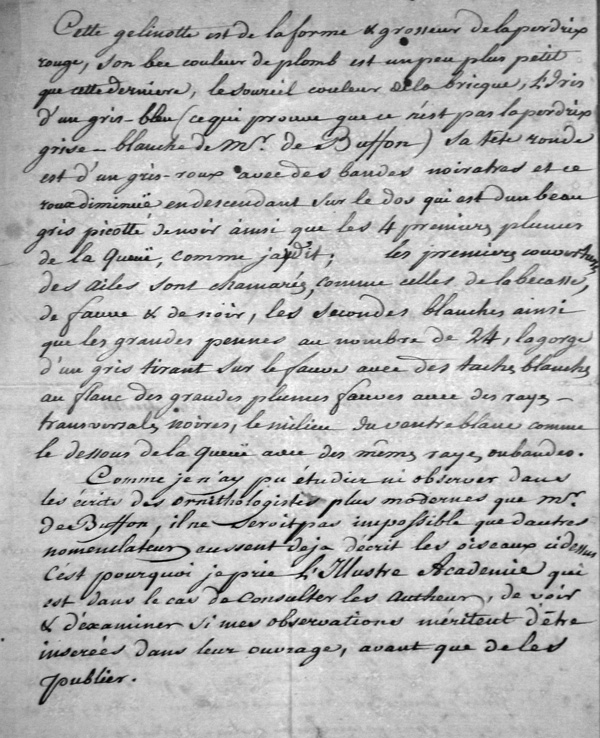 Cette gelinotte est de la forme & grosseur de la perdrix
rouge, son bec couleur de plomb est un peu plus petit
que cette derniere, le sourcil couleur de la bricque, l'Iris
d'un gris-bleu (ce qui prouve que ce n'est pas la perdrix
grise-blanche de Mr. de Buffon) sa tête ronde
est d'un gris-roux avec des bandes noiratres et ce
roux diminuë en descendant sur le dos qui est d'un beau
gris picotté de noir ainsi que les 4 premieres plumes
de la Queuë, comme jay dit; les premieres couvertures
des ailes sont chamarées, comme celles de la becasse,
de fauve & de noir, les secondes blanches ainsi
que les grandes pennes au nombre de 24, la gorge
d'un gris tirant sur le fauve avec des taches blanches
au flanc des grandes plumes fauves avec des rayes
transversales noires, le milieu du ventre blanc comme
le dessous de la Queuë avec des mêmes rayes ou bandes.
Comme je n'ay pu étudier ni observer dans
les écrits des ornithologistes plus modernes que Mr.
de Buffon, il ne seroit pas impossible que d'autres
nomenclateurs eussent deja décrit les oiseaux ci dessus
C'est pourquoi je prie L'Illustre Academie qui
est dans le cas de Consulter les autheurs, de voir
& d'examiner si mes observations méritent d'être
inserées dans leur ouvrage, avant que de les
publier.